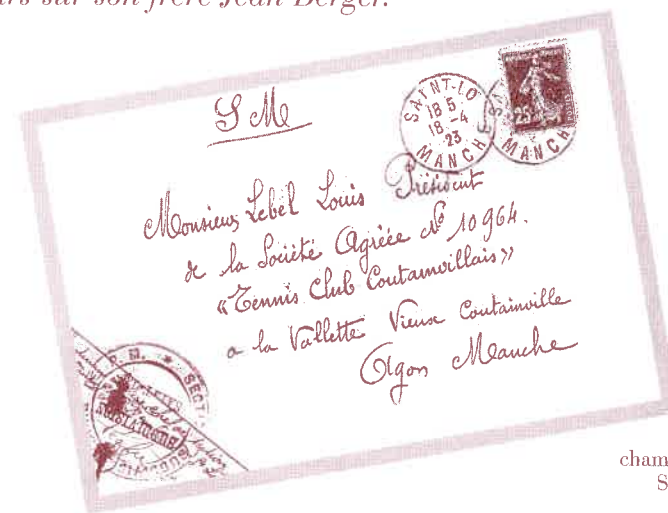 sur son frère Jean Berger.
S M
SAINT-LO
18 5
18 -4
23
MANCHE
MANCHE
25
Monsieur Lebel Louis Président
de la Société Agréée No 10964.
"Tennis Club Coutainvillais"
a la Vallette Vieux Coutainville
Agon Manche
cham
S